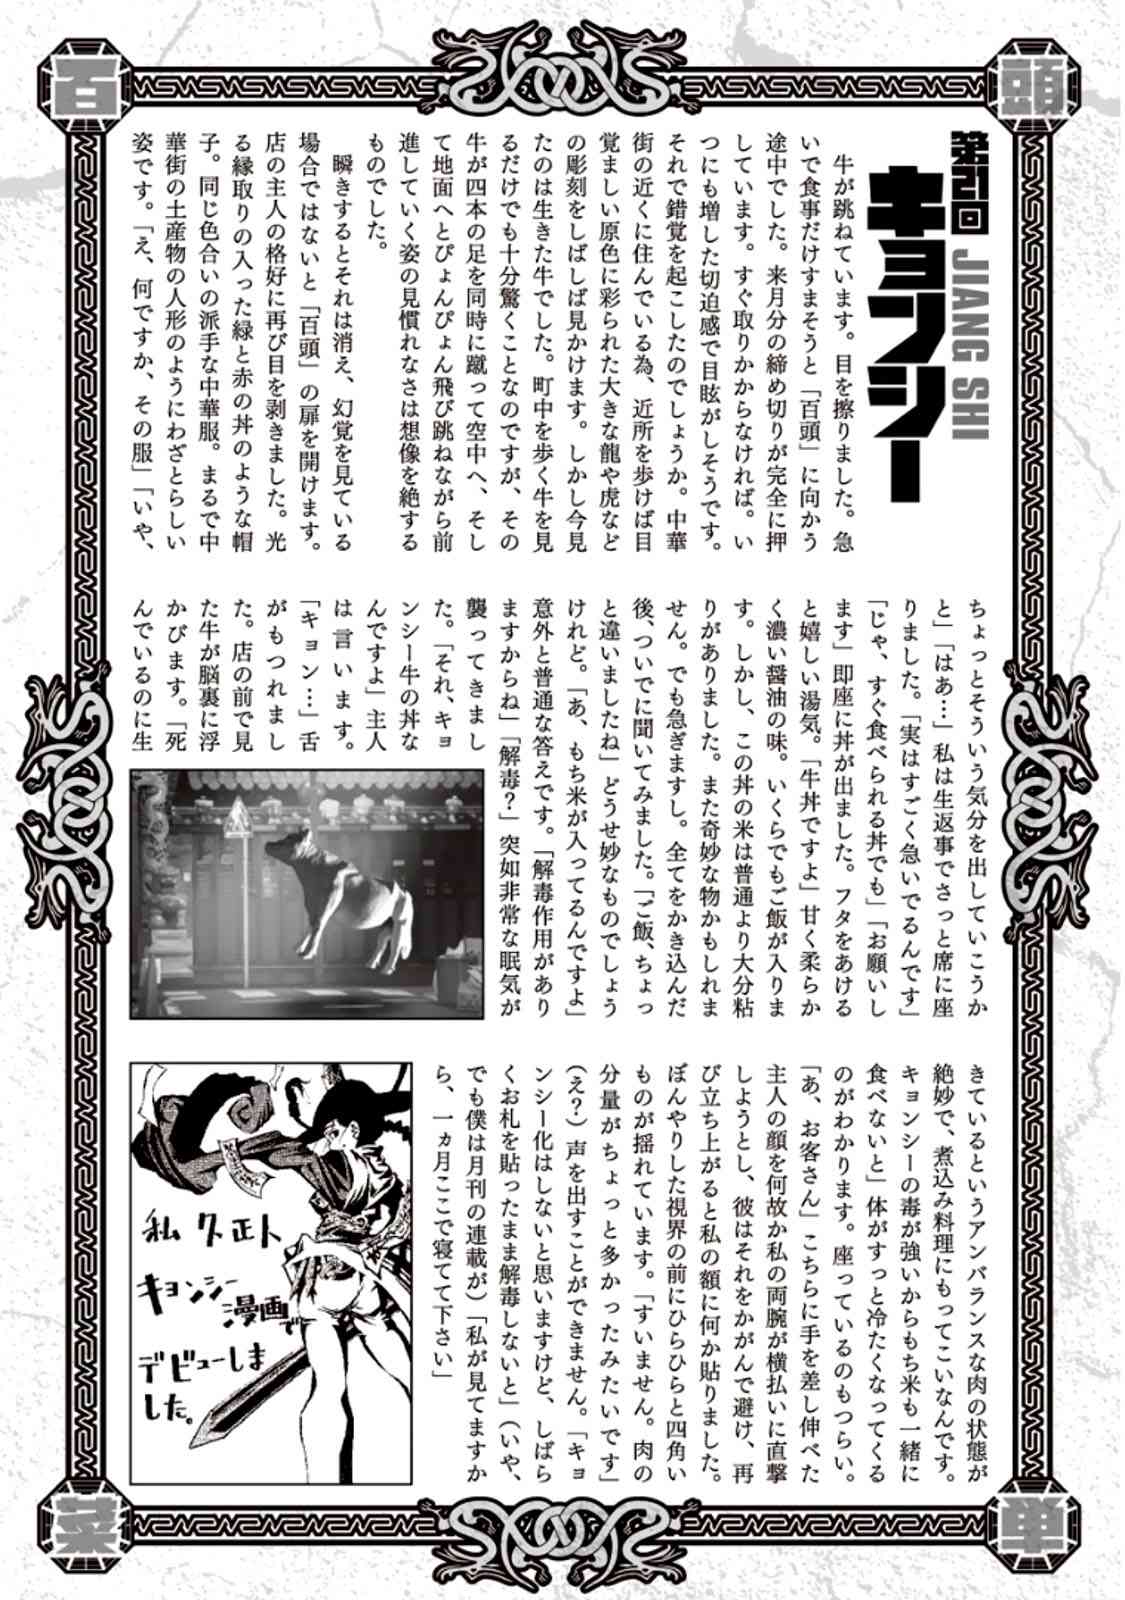 百
頭
第21回
キョンシー
JIANG SHI
牛が跳ねています。目を擦りました。急
いで食事だけすまそうと「百頭」に向かう
途中でした。来月分の締め切りが完全に押
しています。すぐ取りかからなければ。い
つにも増した切迫感で目眩がしそうです。
それで錯覚を起こしたのでしょうか。中華
街の近くに住んでいる為、近所を歩けば目
覚ましい原色に彩られた大きな龍や虎など
の彫刻をしばしば見かけます。しかし今見
たのは生きた牛でした。町中を歩く牛を見
るだけでも十分驚くことなのですが、その
牛が四本の足を同時に蹴って空中へ、そし
て地面へとぴょんぴょん飛び跳ねながら前
進していく姿の見慣れなさは想像を絶する
ものでした。
瞬きするとそれは消え、幻覚を見ている
場合ではないと「百頭」の扉を開けます。
店の主人の格好に再び目を剥きました。光
る縁取りの入った緑と赤の丼のような帽
子。同じ色合いの派手な中華服。まるで中
華街の土産物の人形のようにわざとらしい
姿です。「え、何ですか、その服」「いや、
ちょっとそういう気分を出していこうか
と」「はあ…」私は生返事でさっと席に座
りました。「実はすごく急いでるんです」
「じゃ、すぐ食べられる丼でも」「お願いし
ます」即座に丼が出ました。フタをあける
と嬉しい湯気。「牛丼ですよ」甘く柔らか
く濃い醤油の味。いくらでもご飯が入りま
す。しかし、この丼の米は普通より大分粘
りがありました。また奇妙な物かもしれま
せん。でも急ぎますし。全てをかき込んだ
後、ついでに聞いてみました。「ご飯、ちょっ
と違いましたね」どうせ妙なものでしょう
けれど。「あ、もち米が入ってるんですよ」
意外と普通な答えです。「解毒作用があり
ますからね」「解毒？」突如非常な眠気が
襲ってきまし
た。「それ、キョ
ンシー牛の丼な
んですよ」主人
は言います。
「キョン…」舌
がもつれまし
た。店の前で見
た牛が脳裏に浮
かびます。「死
んでいるのに生
きているというアンバランスな肉の状態が
絶妙で、煮込み料理にもってこいなんです。
キョンシーの毒が強いからもち米も一緒に
食べないと」体がすっと冷たくなってくる
のがわかります。座っているのもつらい。
「あ、お客さん」こちらに手を差し伸べた
主人の顔を何故か私の両腕が横払いに直撃
しようとし、彼はそれをかがんで避け、再
び立ち上がると私の額に何か貼りました。
ぼんやりした視界の前にひらひらと四角い
ものが揺れています。「すいません。肉の
分量がちょっと多かったみたいです」
(え？) 声を出すことができません。「キョ
ンシー化はしないと思いますけど、しばら
くお札を貼ったまま解毒しないと」(いや、
でも僕は月刊の連載が)「私が見てますか
ら、一ヵ月ここで寝てて下さい」
私 久正人
キョンシー
漫画で
デビューしま
した。
菜
単